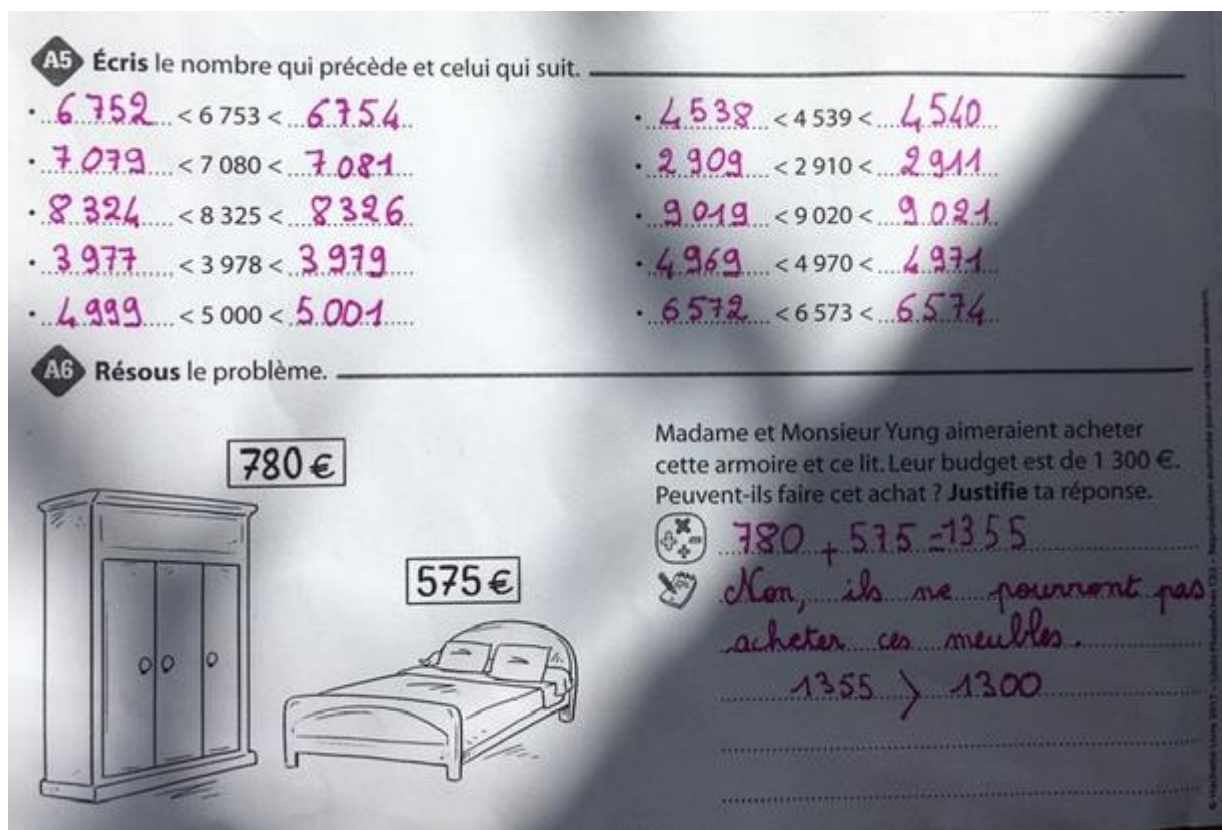 A5 Écris le nombre qui précède et celui qui suit.
• 6 752 < 6 753 < 6754
• 7 079 < 7 080 < 7 081
• 8 324 < 8 325 < 8326
• 3 977 < 3 978 < 3 979
• 4 999 < 5 000 < 5 001
• 4 538 < 4 539 < 4540
• 2 909 < 2 910 < 2 911
• 9 019 < 9 020 < 9 021
• 4 969 < 4 970 < 4 971
• 6 572 < 6 573 < 6574
A6 Résous le problème.
780 €
575 €
Madame et Monsieur Yung aimeraient acheter
cette armoire et ce lit. Leur budget est de 1 300 €.
Peuvent-ils faire cet achat ? Justifie ta réponse.
780 + 575 = 1355
Non, ils ne pourront pas
acheter ces meubles.
1355 > 1300
© Hachette Livre 2017